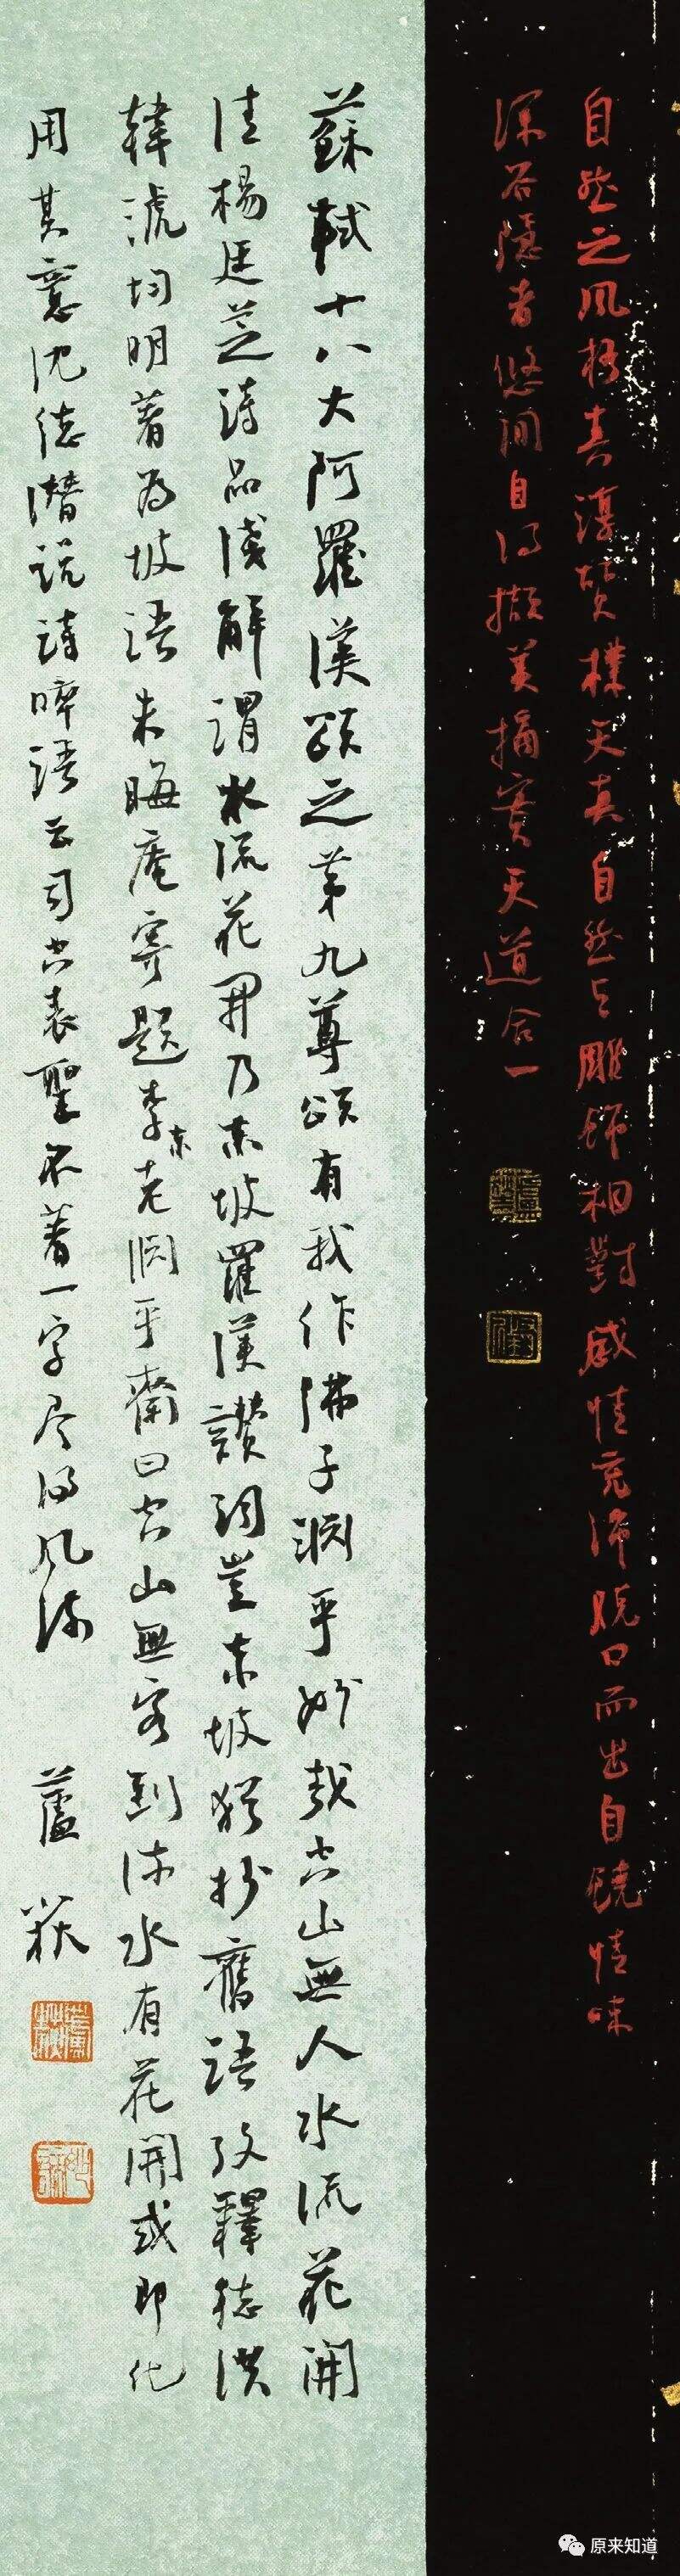 自然之风格真淳質樸天真自然与雕飾相對感情充沛脱口而出自饒情味
深谷隱者悠闲自得撷英摘實天道合一
蘇軾十八大阿羅漢頌之第九尊頌有我作佛子洞乎妙哉空山無人水流花開
清楊廷芝詩品淺解謂水流花開乃東坡羅漢讚詞豈東坡猶抄舊語攷釋德洪
韓淲均明著为坡語朱晦庵寄題李東老淵乎齋曰空山無客到流水有花開或即化
用其意沈德潛说詩晬語云司空表聖不著一字尽得风流
蘆荻
原来知道